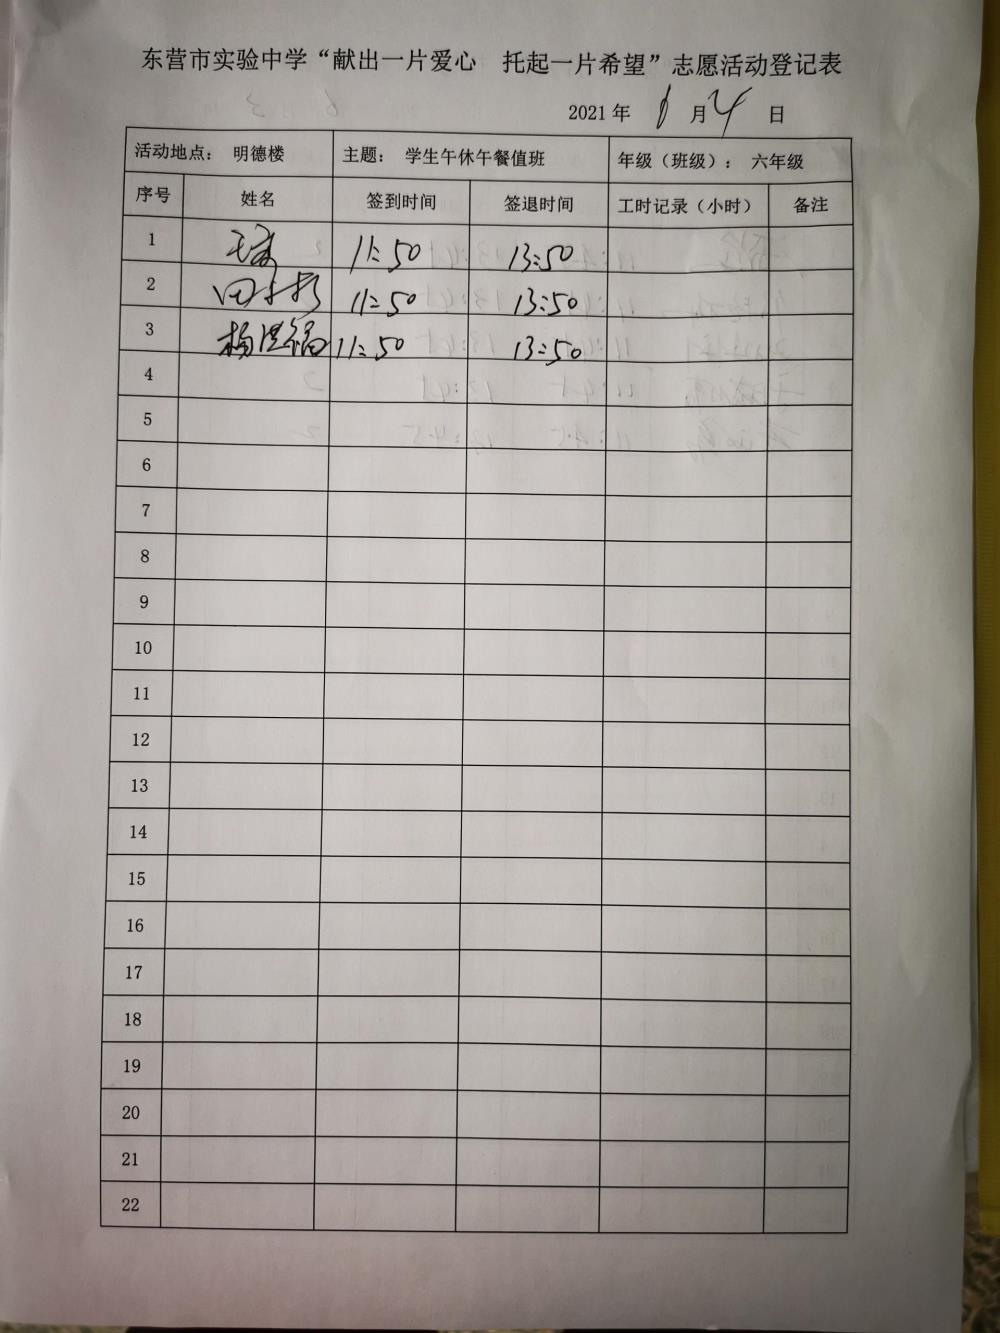 东营市实验中学“献出一片爱心 托起一片希望”志愿活动登记表
2021年 6月4日
活动地点： 明德楼 主题： 学生午休午餐值班 年级（班级）： 六年级
序号 姓名 签到时间 签退时间 工时记录（小时） 备注
1 11:50 13:50
2 11:50 13:50
3 11:50 13:50
4
5
6
7
8
9
10
11
12
13
14
15
16
17
18
19
20
21
22